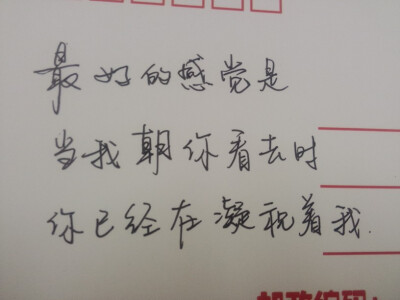 最好的感觉是
当我朝你看去时
你已经在凝视着我.
邮政编码：